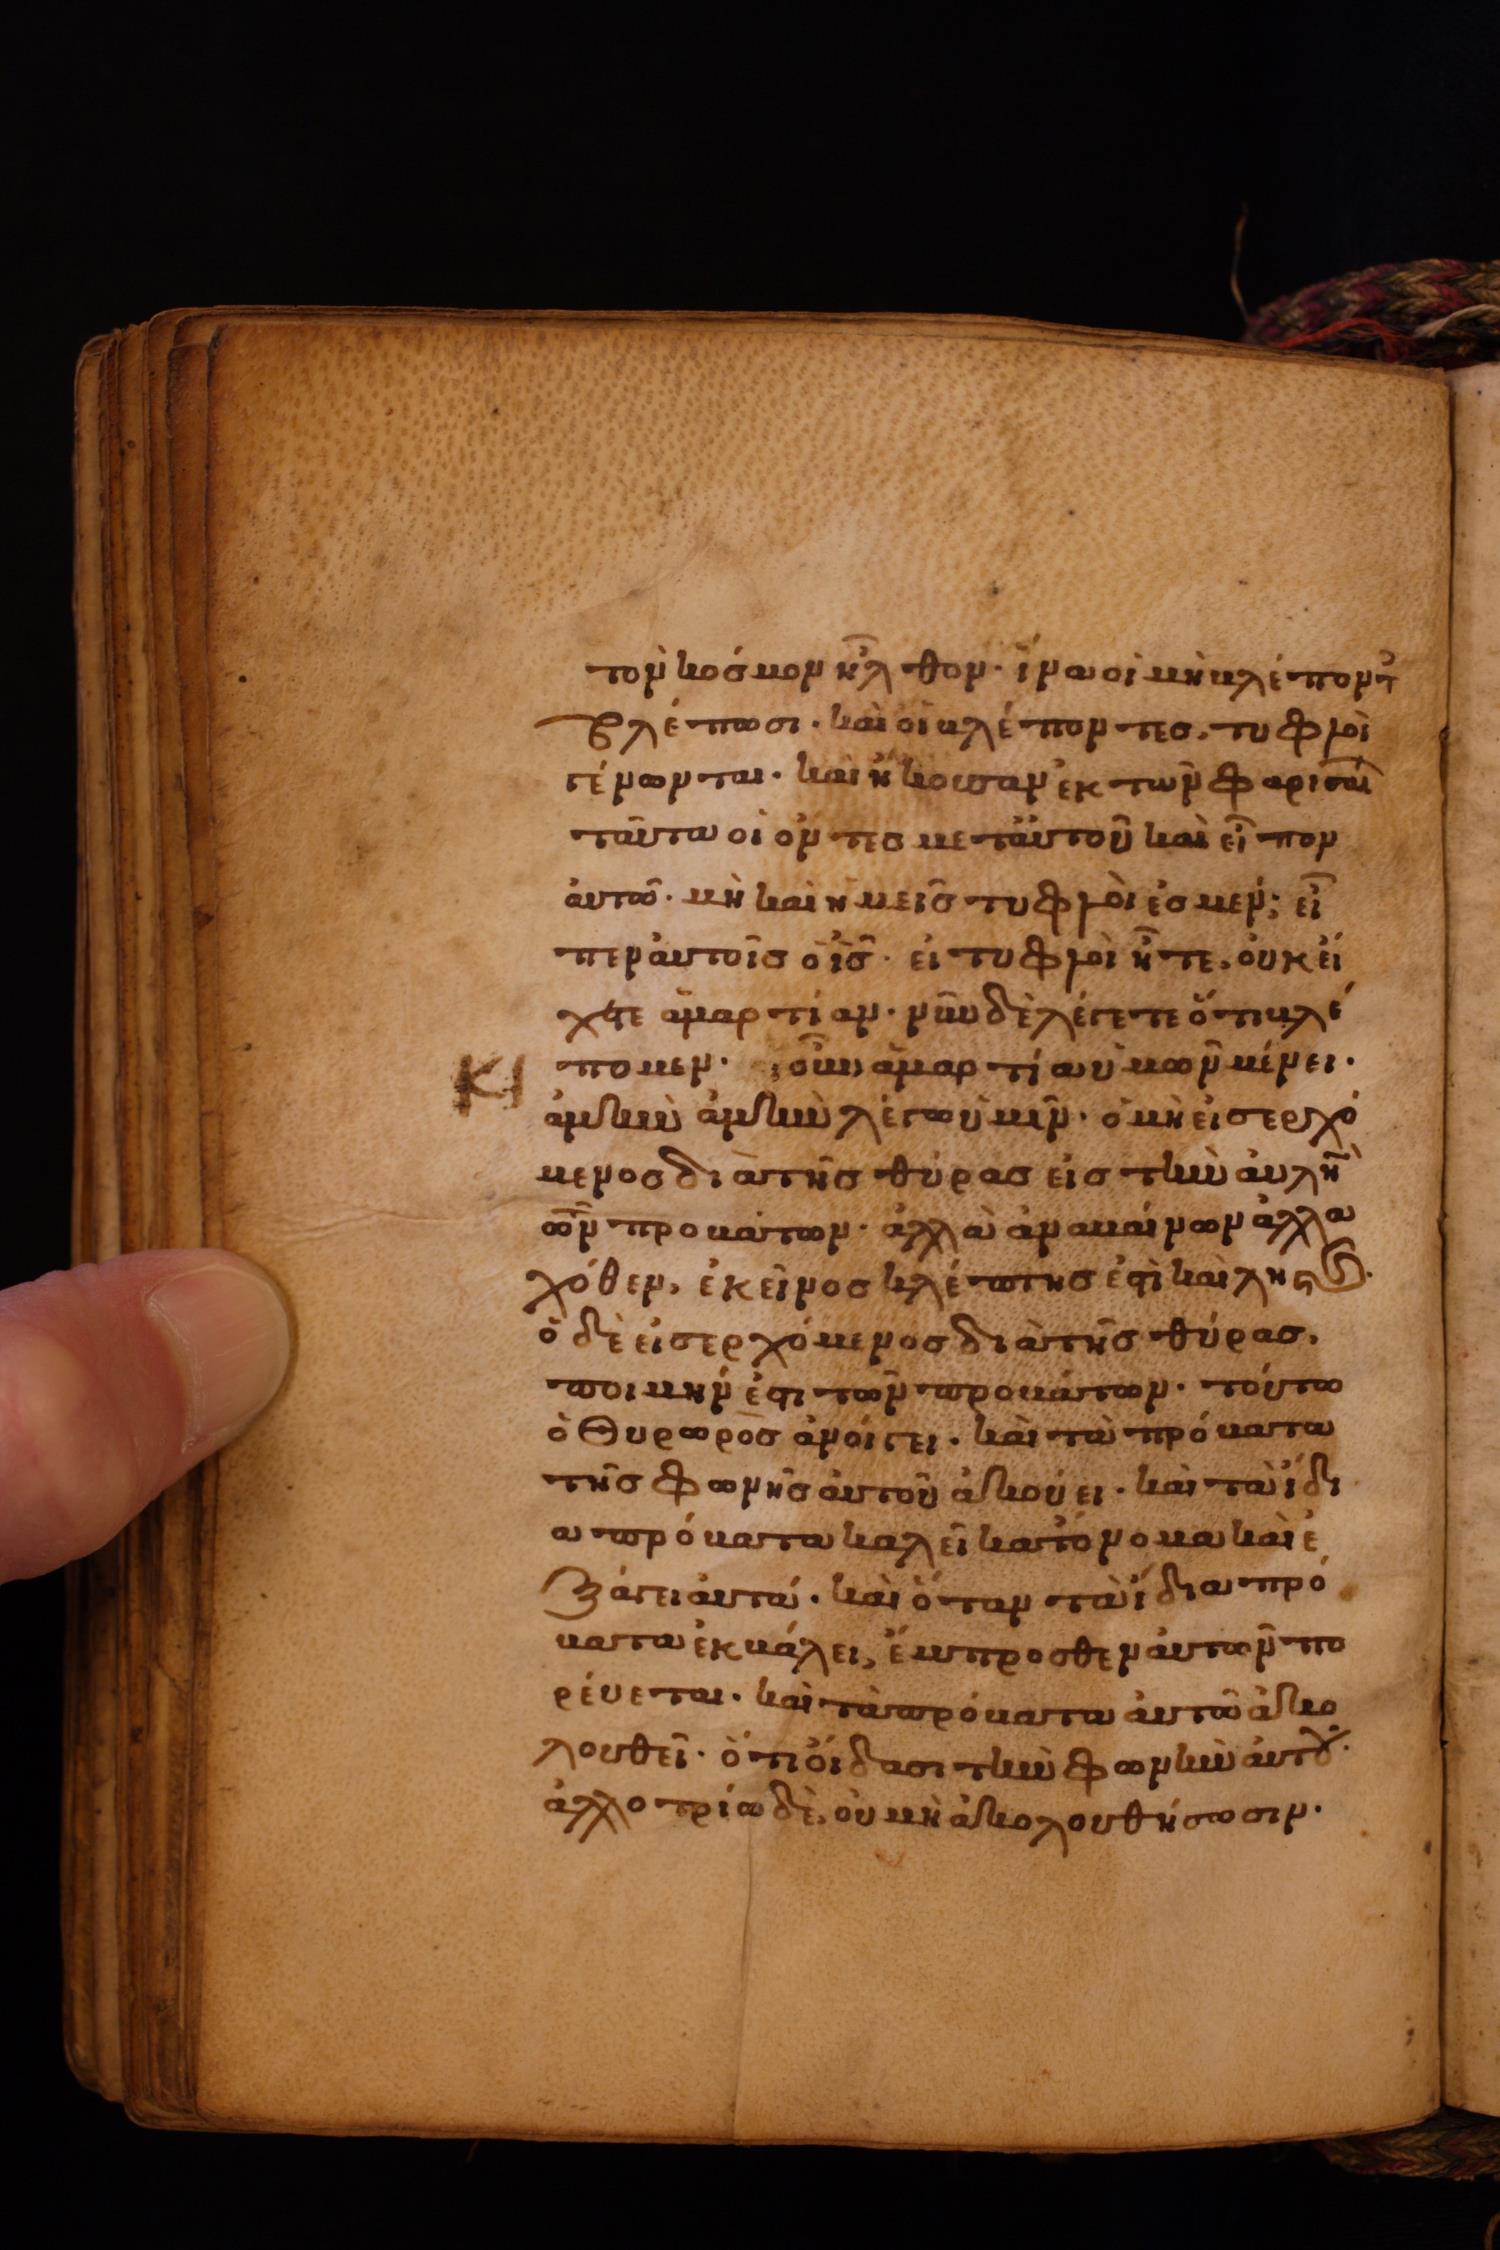 τὸν κόσμον ἦλθον· ἵνα οἱ μὴ βλέποντ
βλέπωσι· καὶ οἱ βλέποντες, τυφλοὶ
γένωνται· καὶ ἤκουσαν ἐκ τῶν φαρισαί
ταῦτα οἱ ὄντες μετ' αὐτοῦ καὶ εἶπον
αὐτῶ· μὴ καὶ ἡμεῖς τυφλοὶ ἐσμέν; εἶ
πεν αὐτοῖς ὁ ἰς̄· εἰ τυφλοὶ ἦτε, οὐκ εἴ
χετε ἁμαρτίαν· νῦν δὲ λέγετε ὅτι βλέ
πομεν· οὖν ἁμαρτία ὑμῶν μένει·
ἀμὴν ἀμὴν λέγω ὑμῖν· ὁ μὴ εἰσερχό
μενος διὰ τῆς θύρας εἰς τὴν αὐλὴ̄
τῶν προβάτων· ἀλλὰ ἀναβαίνων ἀλλα
χόθεν, ἐκεῖνος κλέπτης ἐστὶ καὶ ληστής·
ὁ δὲ εἰσερχόμενος διὰ τῆς θύρας,
ποιμήν ἐστι τῶν προβάτων· τούτω
ὁ θυρωρὸς ἀνοίγει· καὶ τὰ πρόβατα
τῆς φωνῆς αὐτοῦ ἀκούει· καὶ τὰ ἴδι
α πρόβατα καλεῖ κατ' ὄνομα καὶ ἐ
ξάγει αὐτά· καὶ ὅταν τὰ ἴδια πρό
βατα ἐκβάλει, ἔμπροσθεν αὐτῶν πο
ρεύεται· καὶ τὰ πρόβατα αὐτῶ ἀκο
λουθεῖ· ὅτι οἴδασι τὴν φωνὴν αὐτοῦ·
ἀλλοτρίω δὲ, οὐ μὴ ἀκολουθήσωσιν·